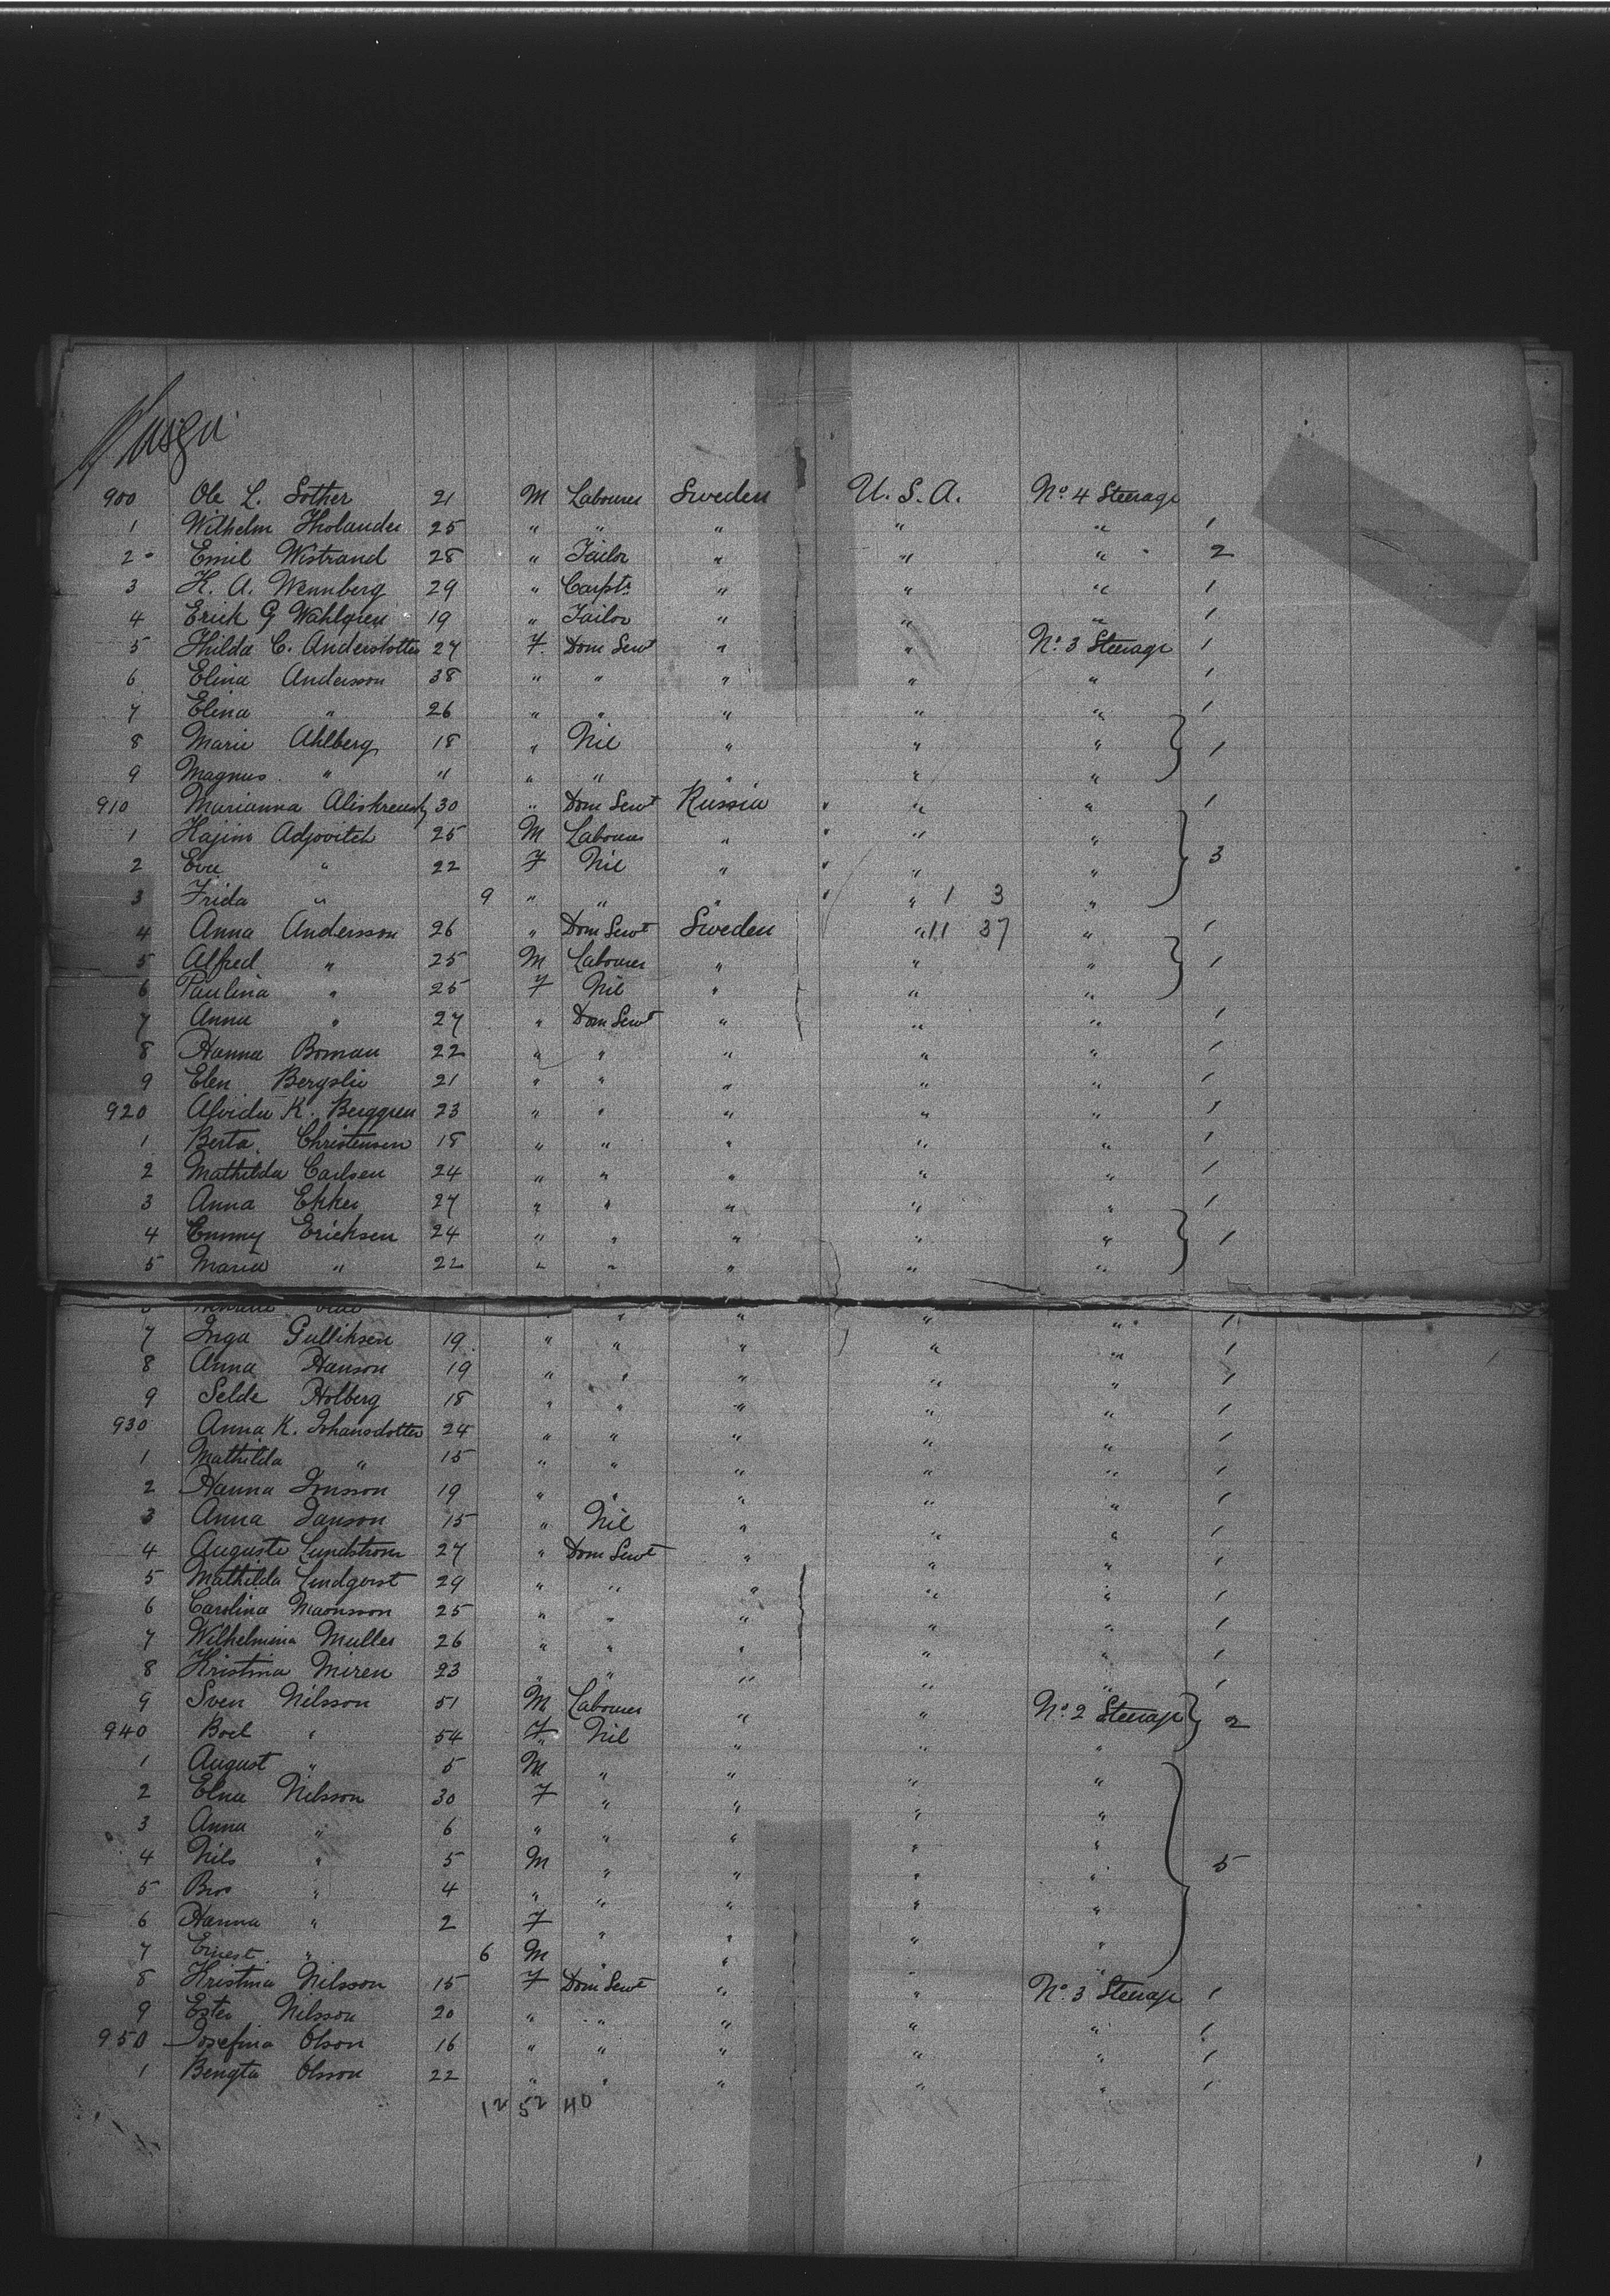 900 Ole L. Sother 21 M Labourer Sweden U.S.A. No. 4 Steerage
1 Wilhelm Tholander 25 " " " " " 1
2 Emil Wistrand 28 " Tailor " " " 2
3 K. A. Wennberg 29 " Carptr. " " " 1
4 Erick G Wahlgren 19 " Tailor " " " 1
5 Hilda C. Andersdotter 27 F. Dom Servt " " No. 3 Steerage 1
6 Elina Andersson 38 " " " " " 1
7 Elina " 26 " " " " " 1
8 Marie Ahlberg 18 " Nil " " " } 1
9 Magnus " 11 " " " " "
910 Marianna 30 " Dom Servt Russia " " 1
1 Hajim Adjovitch 25 M Labourer " " " } 3
2 Eva " 22 F Nil " " "
3 Frida " 9 " " " " 1 3 "
4 Anna Andersson 26 " Dom Servt Sweden " 11 37 " 1
5 Alfred " 25 M Labourer " " " } 1
6 Paulina " 25 F Nil " " "
7 Anna " 27 " Dom Servt " " " 1
8 Hanna Boman 22 " " " " " 1
9 Elen Bergslie 21 " " " " " 1
920 Alvida K. Berggren 23 " " " " " 1
1 Berta Christensen 18 " " " " " 1
2 Mathilda Carlsen 24 " " " " " 1
3 Anna Ekker 27 " " " " " 1
4 Emmy Ericksen 24 " " " " " } 1
5 Maria " 22 " " " " "
" " " " 1
7 Inga Gulliksen 19 " " " " " 1
8 Anna Hanson 19 " " " " " 1
9 Selde Holberg 18 " " " " " 1
930 Anna K. Johansdotter 24 " " " " " 1
1 Mathilda " 15 " " " " " 1
2 Hanna Jonsson 19 " " " " " 1
3 Anna Janson 15 " Nil " " " 1
4 Auguste Lundstrom 27 " Dom Servt " " " 1
5 Mathilda Lindqvist 29 " " " " " 1
6 Carolina Maonsson 25 " " " " " 1
7 Wilhelmina Muller 26 " " " " " 1
8 Kristina Miren 23 " " " " " 1
9 Sven Nilsson 51 M Labourer " " No. 2 Steerage } 2
940 Boel " 54 F Nil " " "
1 August " 5 M " " " " } 5
2 Elna Nilsson 30 F " " " "
3 Anna " 6 " " " " "
4 Nils " 5 M " " " "
5 Bros " 4 " " " " "
6 Hanna " 2 F " " " "
7 Ernest " 6 M " " " "
8 Kristina Nilsson 15 F Dom Servt " " No. 3 Steerage 1
9 Ester Nilsson 20 " " " " " 1
950 Josefina Olson 16 " " " " " 1
1 Bengta Olsson 22 " " " " " 1
12 52 40